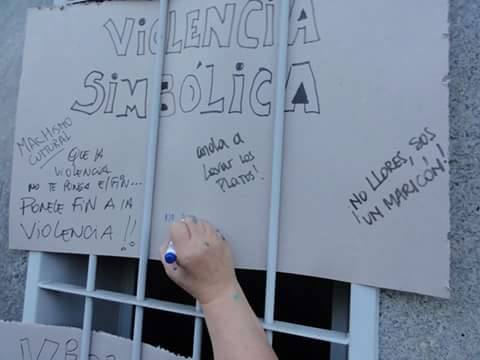 VIOLENCIA
SIMBÓLICA
MACHISMO
CULTURAL
QUE LA
VIOLENCIA
NO TE PONGA EL FIN...
PONELE FIN A LA
VIOLENCIA!!
anda a
Lavar los
PLATOS!
NO LLORES, SOS
UN MARICÓN!!
NO